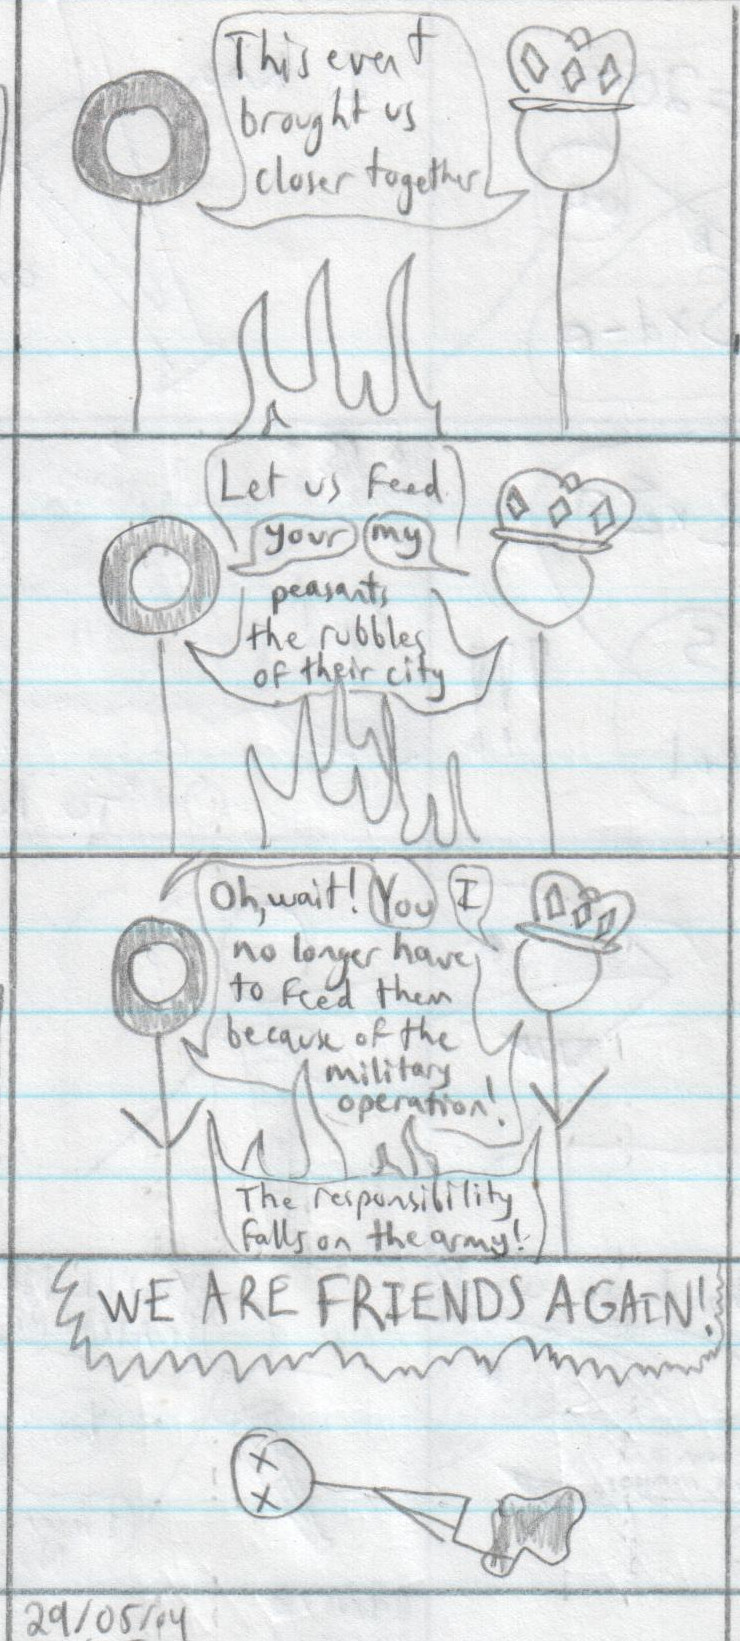 This event
brought us
closer together
Let us feed
your my
peasants
the rubbles
of their city
Oh, wait! You I
no longer have
to feed them
because of the
military
operation!
The responsibility
falls on the army!
WE ARE FRIENDS AGAIN!
29/05/04